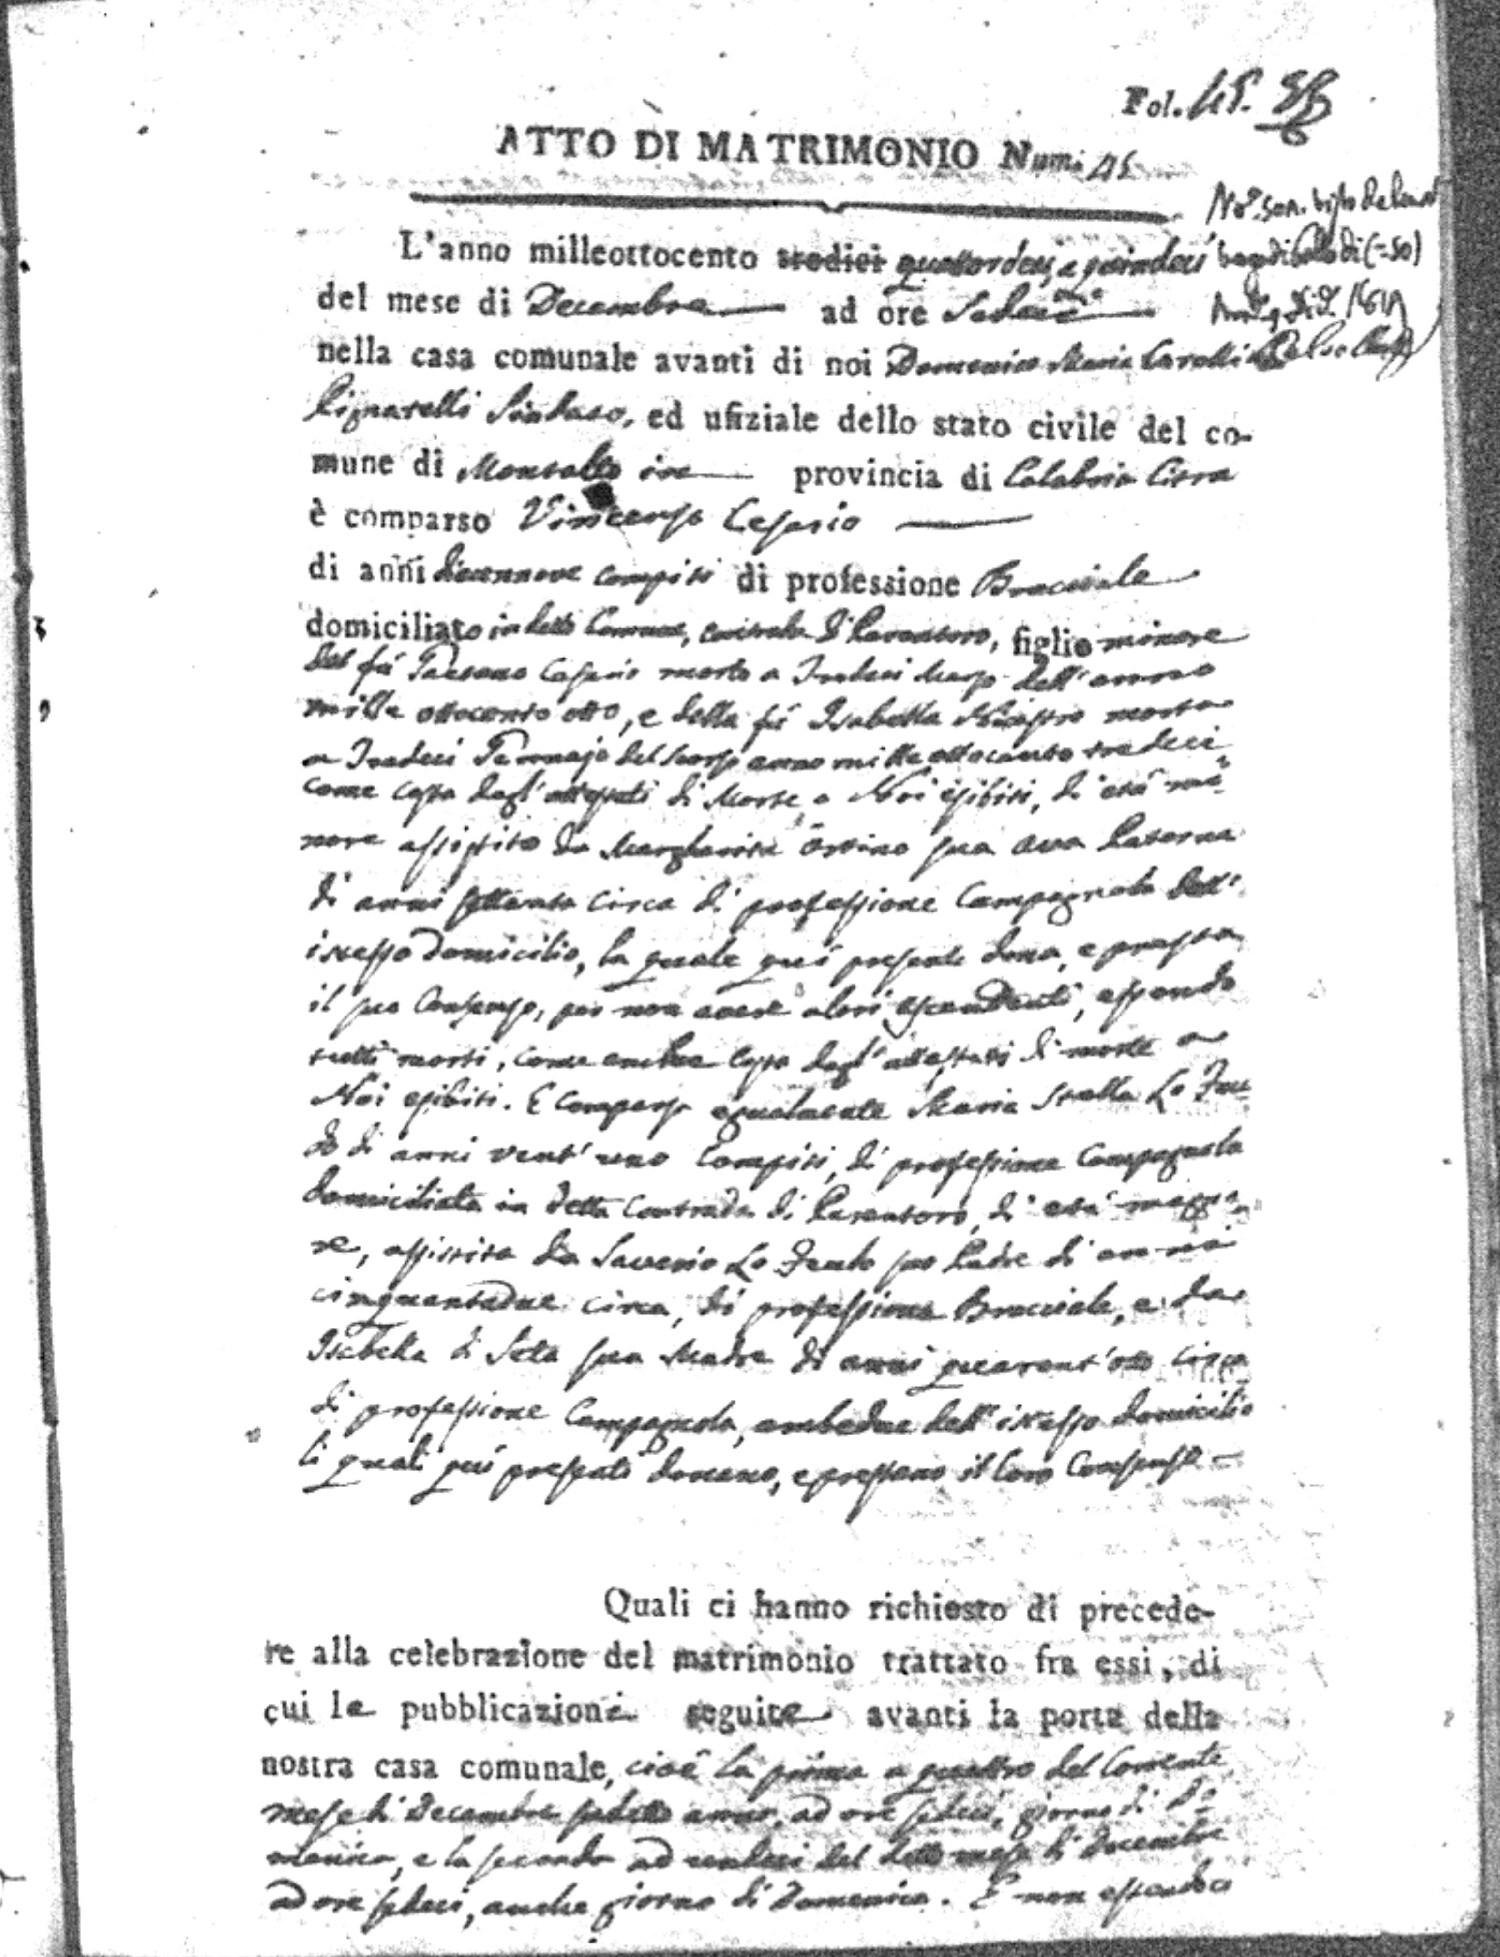 Fol. 45.
ATTO DI MATRIMONIO Num. 45
L'anno milleottocento tredici quattordeci, a quindeci
del mese di Decembre ad ore
nella casa comunale avanti di noi Domenico Maria
Pignatelli Sindaco, ed ufiziale dello stato civile del co-
mune di Montalto provincia di Calabria Citra
è comparso Vincenzo Cesario
di anni diecennove compiti di professione Bracciale
domiciliato in detto Comune, contrada di Parantoro, figlio minore
del fù Gaetano Cesario morto a Tredeci Marzo dell'anno
mille ottocento otto, e della fù Isabella morta
a Tredeci Gennajo del scorso anno mille ottocento tredeci
come costa dagl'attestati di Morte, a Noi esibiti, di età mi-
nore assistito da Margherita sua Ava Paterna
di anni settanta circa di professione Campagnola dell'
istesso domicilio, la quale quì presente dona, e presta
il suo Consenso, per non avere altri ascendenti, essendo
tutti morti, come anche costa dagl'attestati di morte a
Noi esibiti. E comparsa egualmente Maria Stella Lo Feu-
do di anni vent'uno compiti, di professione Campagnola
domiciliata in detta Contrada di Parantoro, di età maggio-
re, assistita da Saverio Lo Feudo suo Padre di anni
cinquantadue circa, di professione Bracciale, e da
Isabella di Seta sua Madre di anni quarant'otto circa
di professione Campagnola, ambedue dell'istesso domicilio
li quali quì presenti donano, e prestano il loro Consenso
Quali ci hanno richiesto di precede-
re alla celebrazione del matrimonio trattato fra essi, di
cui le pubblicazioni seguite avanti la porta della
nostra casa comunale, cioè la prima a quattro del Corrente
mese di Decembre sudetto anno, ad ore sedeci, giorno di Do-
menica, e la seconda ad undeci del detto mese di Decembre
ad ore sedeci, anche giorno di Domenica. E non essendoci